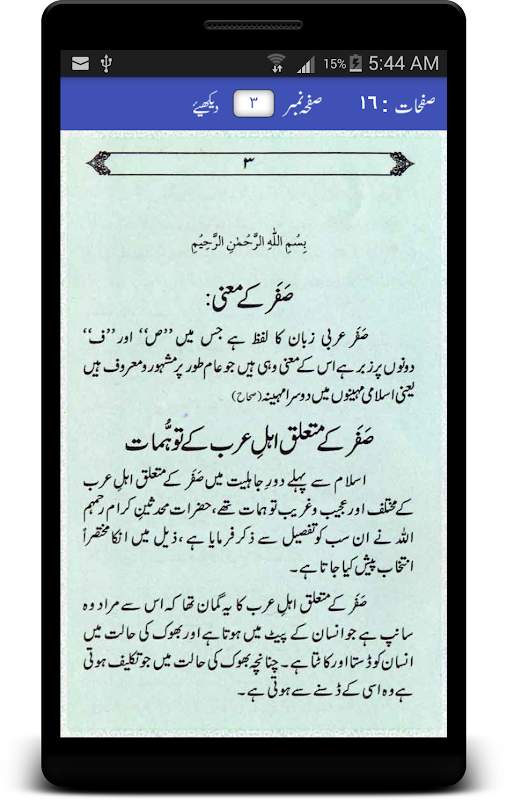 15% 5:44 AM
صفحات : ١٦ صفحہ نمبر ٣ دیکھیئے
٣
بِسْمِ اللّٰهِ الرَّحْمٰنِ الرَّحِيْمِ
صَفَر کے معنی:
صَفَر عربی زبان کا لفظ ہے جس میں ’’ص‘‘ اور ’’ف‘‘
دونوں پر زبر ہے اس کے معنی وہی ہیں جو عام طور پر مشہور و معروف ہیں
یعنی اسلامی مہینوں میں دوسرا مہینہ (صحاح)
صَفَر کے متعلق اہلِ عرب کے توہُّمات
اسلام سے پہلے دورِ جاہلیت میں صَفَر کے متعلق اہلِ عرب
کے مختلف اور عجیب و غریب توہمات تھے، حضرات محدثینِ کرام رحمہم
اللہ نے ان سب کو تفصیل سے ذکر فرمایا ہے، ذیل میں انکا مختصراً
انتخاب پیش کیا جاتا ہے۔
صَفَر کے متعلق اہلِ عرب کا یہ گمان تھا کہ اس سے مراد وہ
سانپ ہے جو انسان کے پیٹ میں ہوتا ہے اور بھوک کی حالت میں
انسان کو ڈستا اور کاٹتا ہے۔ چنانچہ بھوک کی حالت میں جو تکلیف ہوتی
ہے وہ اسی کے ڈسنے سے ہوتی ہے۔